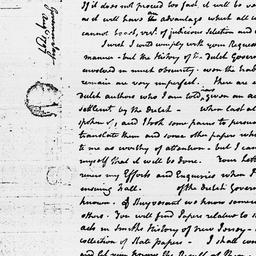 If it does not proceed too fast, it will be va
as it will have the advantage which all
cannot boast, viz. of judicious selection and
I wish I could comply with your Reques
manner - but the History of the Dutch Govern
involved in much obscurity - upon the
remain are very imperfect. There are
Dutch authors who I am told given an ac
settlemt. by the Dutch - When last at
spoken of, and I took some pains to procure
translate them and some other papers wh
to me as worthy of attention - but I cann
myself that it will be done. Your letter
renew my Efforts and Enquiries when I
ensuing Fall. of the Dutch Govern
known - of Stuyvesant we know somew
others. You will find Papers relative to
acts in Smith's History of New Jersey -
collection of State papers - I shall con
and let you know the Result of them